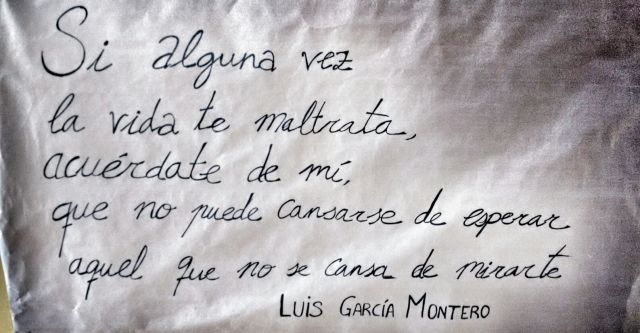 Si alguna vez
la vida te maltrata,
acuérdate de mí,
que no puede cansarse de esperar
aquel que no se cansa de mirarte
LUIS GARCÍA MONTERO